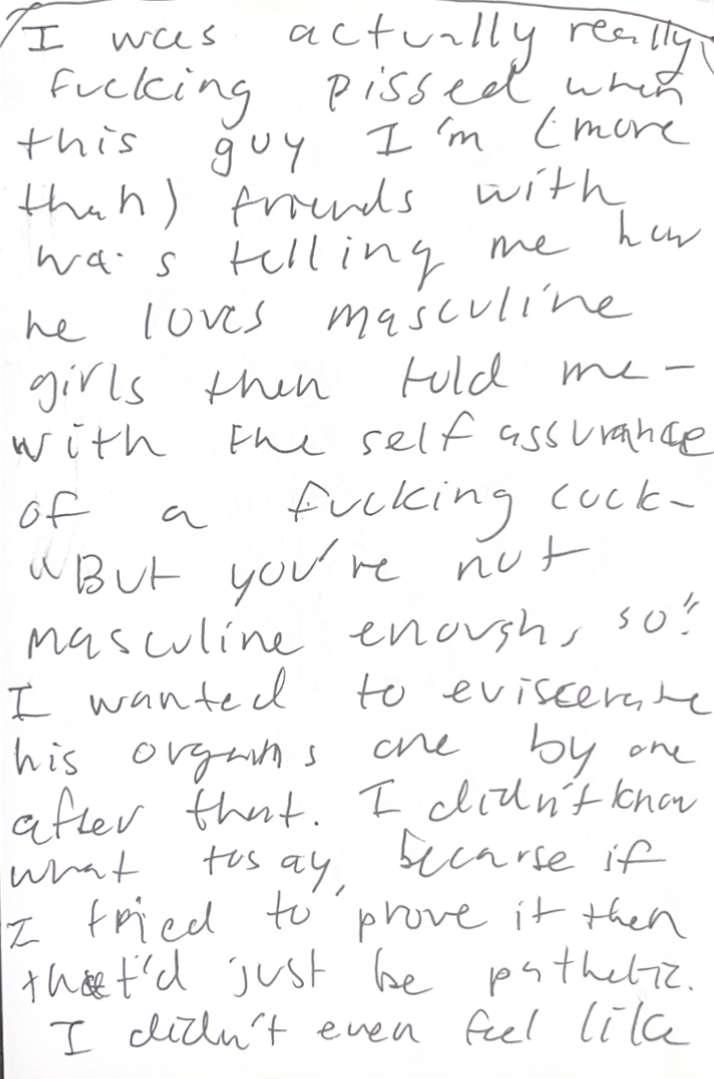 I was actually really
fucking pissed when
this guy I'm (more
than) friends with
was telling me how
he loves masculine
girls then told me -
with the self assurance
of a fucking cock -
"But you're not
masculine enough, so"
I wanted to eviscerate
his organs one by one
after that. I didn't know
what to say, because if
I tried to prove it then
that'd just be pathetic.
I didn't even feel like